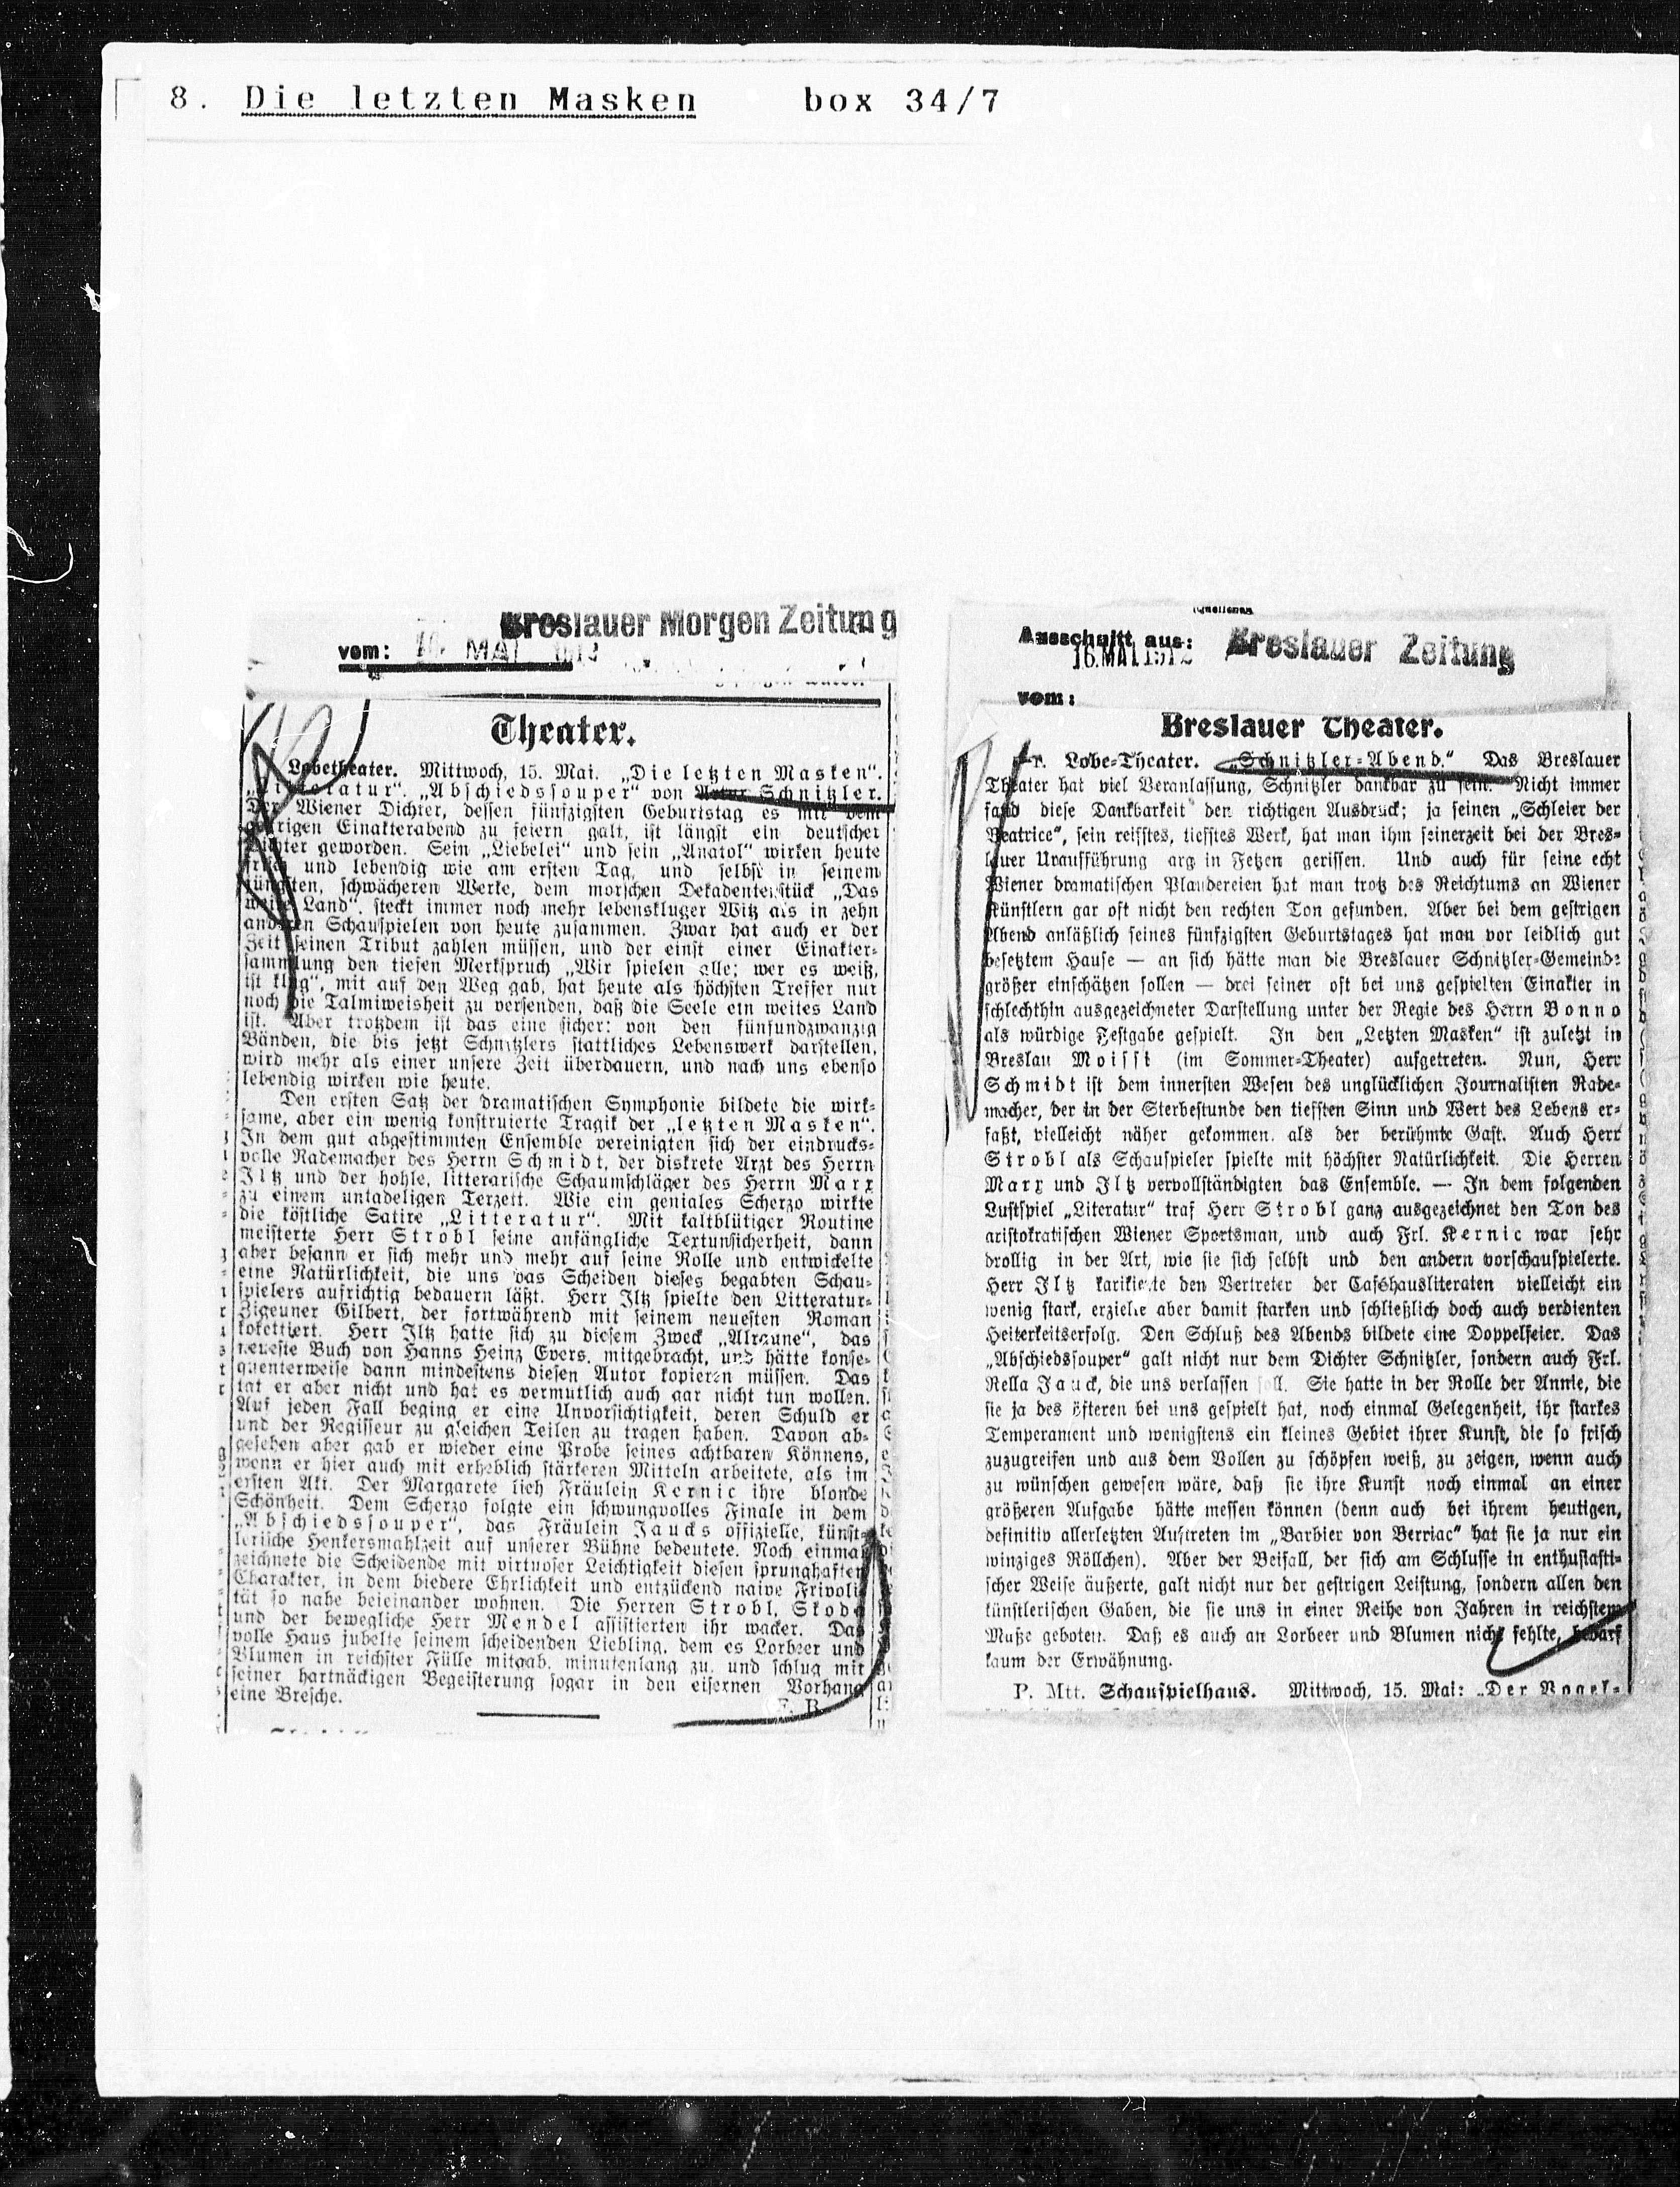 8. Die letzten Masken box 34/7
Breslauer Morgen Zeitung
vom: MAI
Theater.
Lobetheater. Mittwoch, 15. Mai. „Die letzten Masken“.
„Litteratur“. „Abschiedssouper“ von Artur Schnitzler.
Der Wiener Dichter, dessen fünfzigsten Geburtstag es mit dem
gestrigen Einakterabend zu feiern galt, ist längst ein deutscher
Dichter geworden. Sein „Liebelei“ und sein „Anatol“ wirken heute
frisch und lebendig wie am ersten Tag, und selbst in seinem
jüngsten, schwächeren Werke, dem morschen Dekadentenstück „Das
weite Land“, steckt immer noch mehr lebenskluger Witz als in zehn
anderen Schauspielen von heute zusammen. Zwar hat auch er der
Zeit seinen Tribut zahlen müssen, und der einst einer Einakter-
sammlung den tiefen Merkspruch „Wir spielen alle; wer es weiß,
ist klug“, mit auf den Weg gab, hat heute als höchsten Treffer nur
noch die Talmiweisheit zu versenden, daß die Seele ein weites Land
ist. Aber trotzdem ist das eine sicher: von den fünfundzwanzig
Bänden, die bis jetzt Schnitzlers stattliches Lebenswerk darstellen,
wird mehr als einer unsere Zeit überdauern, und nach uns ebenso
lebendig wirken wie heute.
Den ersten Satz der dramatischen Symphonie bildete die wirk-
same, aber ein wenig konstruierte Tragik der „letzten Masken“.
In dem gut abgestimmten Ensemble vereinigten sich der eindrucks-
volle Rademacher des Herrn Schmidt, der diskrete Arzt des Herrn
Iltz und der hohle, litterarische Schaumschläger des Herrn Marx
zu einem untadeligen Terzett. Wie ein geniales Scherzo wirkte
die köstliche Satire „Litteratur“. Mit kaltblütiger Routine
meisterte Herr Strobl seine anfängliche Textunsicherheit, dann
aber besann er sich mehr und mehr auf seine Rolle und entwickelte
eine Natürlichkeit, die uns das Scheiden dieses begabten Schau-
spielers aufrichtig bedauern läßt. Herr Iltz spielte den Litteratur-
Zigeuner Gilbert, der fortwährend mit seinem neuesten Roman
kokettiert. Herr Iltz hatte sich zu diesem Zweck „Alraune“, das
neueste Buch von Hanns Heinz Evers, mitgebracht, und hätte konse-
quenterweise dann mindestens diesen Autor kopieren müssen. Das
tat er aber nicht und hat es vermutlich auch gar nicht tun wollen.
Auf jeden Fall beging er eine Unvorsichtigkeit, deren Schuld er
und der Regisseur zu gleichen Teilen zu tragen haben. Davon ab-
gesehen aber gab er wieder eine Probe seines achtbaren Könnens,
wenn er hier auch mit erheblich stärkeren Mitteln arbeitete, als im
ersten Akt. Der Margarete lieh Fräulein Kernic ihre blonde
Schönheit. Dem Scherzo folgte ein schwungvolles Finale in dem
„Abschiedssouper“, das Fräulein Jaucks offizielle, künst-
lerische Henkersmahlzeit auf unserer Bühne bedeutete. Noch einmal
zeichnete die Scheidende mit virtuoser Leichtigkeit diesen sprunghaften
Charakter, in dem biedere Ehrlichkeit und entzückend naive Frivoli-
tät so nahe beieinander wohnen. Die Herren Strobl, Skoda
und der bewegliche Herr Mendel assistierten ihr wacker. Das
volle Haus jubelte seinem scheidenden Liebling, dem es Lorbeer und
Blumen in reichster Fülle mitgab, minutenlang zu, und schlug mit
seiner hartnäckigen Begeisterung sogar in den eisernen Vorhang
eine Bresche.
Ausschnitt aus: Breslauer Zeitung
16. MAI 1912
vom:
Breslauer Theater.
Lobe-Theater. „Schnitzler-Abend.“ Das Breslauer
Theater hat viel Veranlassung, Schnitzler dankbar zu sein. Nicht immer
fand diese Dankbarkeit den richtigen Ausdruck; ja seinen „Schleier der
Beatrice“, sein reifstes, tiefstes Werk, hat man ihm seinerzeit bei der Bres-
lauer Uraufführung arg in Fetzen gerissen. Und auch für seine echt
Wiener dramatischen Plaudereien hat man trotz des Reichtums an Wiener
Künstlern gar oft nicht den rechten Ton gefunden. Aber bei dem gestrigen
Abend anläßlich seines fünfzigsten Geburtstages hat man vor leidlich gut
besetztem Hause — an sich hätte man die Breslauer Schnitzler-Gemeinde
größer einschätzen sollen — drei seiner oft bei uns gespielten Einakter in
schlechthin ausgezeichneter Darstellung unter der Regie des Herrn Bonno
als würdige Festgabe gespielt. In den „Letzten Masken“ ist zuletzt in
Breslau Moissi (im Sommer-Theater) aufgetreten. Nun, Herr
Schmidt ist dem innersten Wesen des unglücklichen Journalisten Rade-
macher, der in der Sterbestunde den tiefsten Sinn und Wert des Lebens er-
faßt, vielleicht näher gekommen, als der berühmte Gast. Auch Herr
Strobl als Schauspieler spielte mit höchster Natürlichkeit. Die Herren
Marx und Iltz vervollständigten das Ensemble. — In dem folgenden
Lustspiel „Literatur“ traf Herr Strobl ganz ausgezeichnet den Ton des
aristokratischen Wiener Sportsman, und auch Frl. Kernic war sehr
drollig in der Art, wie sie sich selbst und den andern vorschauspielerte.
Herr Iltz karikierte den Vertreter der Caféhausliteraten vielleicht ein
wenig stark, erzielte aber damit starken und schließlich doch auch verdienten
Heiterkeitserfolg. Den Schluß des Abends bildete eine Doppelfeier. Das
„Abschiedssouper“ galt nicht nur dem Dichter Schnitzler, sondern auch Frl.
Rella Jauck, die uns verlassen soll. Sie hatte in der Rolle der Annie, die
sie ja des öfteren bei uns gespielt hat, noch einmal Gelegenheit, ihr starkes
Temperament und wenigstens ein kleines Gebiet ihrer Kunst, die so frisch
zuzugreifen und aus dem Vollen zu schöpfen weiß, zu zeigen, wenn auch
zu wünschen gewesen wäre, daß sie ihre Kunst noch einmal an einer
größeren Aufgabe hätte messen können (denn auch bei ihrem heutigen,
definitiv allerletzten Auftreten im „Barbier von Berriac“ hat sie ja nur ein
winziges Röllchen). Aber der Beifall, der sich am Schlusse in enthusiasti-
scher Weise äußerte, galt nicht nur der gestrigen Leistung, sondern allen den
künstlerischen Gaben, die sie uns in einer Reihe von Jahren in reichstem
Maße geboten. Daß es auch an Lorbeer und Blumen nicht fehlte, bedarf
kaum der Erwähnung.
P. Mtt. Schauspielhaus. Mittwoch, 15. Mai: „Der Vogel-